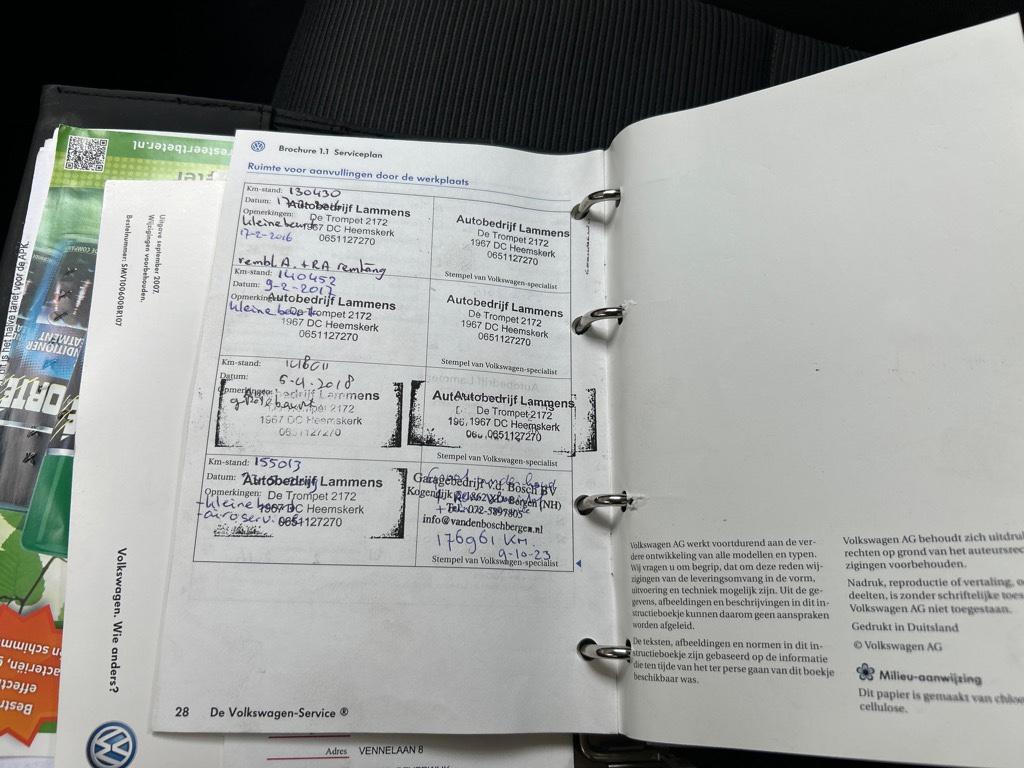 Brochure 1.1 Serviceplan
Ruimte voor aanvullingen door de werkplaats
Km-stand: 130430
Datum:
Autobedrijf Lammens
Opmerkingen:
De Trompet 2172
kleine beurt
1967 DC Heemskerk
17-2-2016
0651127270
rembl. A. + RA remtang
Autobedrijf Lammens
De Trompet 2172
1967 DC Heemskerk
0651127270
Stempel van Volkswagen-specialist
Km-stand: 140452
Datum: 9-2-2017
Opmerkingen:
Autobedrijf Lammens
kleine beurt
De Trompet 2172
1967 DC Heemskerk
0651127270
Autobedrijf Lammens
De Trompet 2172
1967 DC Heemskerk
0651127270
Stempel van Volkswagen-specialist
Km-stand:
Datum: 5-4-2018
Opmerkingen:
Autobedrijf Lammens
grote beurt
De Trompet 2172
1967 DC Heemskerk
0651127270
Autobedrijf Lammens
De Trompet 2172
1967 DC Heemskerk
0651127270
Stempel van Volkswagen-specialist
Km-stand: 155013
Datum:
Autobedrijf Lammens
Opmerkingen:
De Trompet 2172
- kleine beurt
1967 DC Heemskerk
- airoservice
0651127270
Garagebedrijf v.d. Bosch BV
Kogendijk
Bergen (NH)
Tel. 072-5897805
info@vandenboschbergen.nl
176961 KM.
9-10-23
Stempel van Volkswagen-specialist
28 De Volkswagen-Service ®
Adres VENNELAAN 8
Volkswagen AG werkt voortdurend aan de ver-
dere ontwikkeling van alle modellen en typen.
Wij vragen u om begrip, dat om deze reden wij-
zigingen van de leveringsomvang in de vorm,
uitvoering en techniek mogelijk zijn. Uit de ge-
gevens, afbeeldingen en beschrijvingen in dit in-
structieboekje kunnen daarom geen aanspraken
worden afgeleid.
De teksten, afbeeldingen en normen in dit in-
structieboekje zijn gebaseerd op de informatie
die ten tijde van het ter perse gaan van dit boekje
beschikbaar was.
Volkswagen AG behoudt zich uitdruk
rechten op grond van het auteursrec
zigingen voorbehouden.
Nadruk, reproductie of vertaling, o
deelten, is zonder schriftelijke toes
Volkswagen AG niet toegestaan.
Gedrukt in Duitsland
© Volkswagen AG
Milieu-aanwijzing
Dit papier is gemaakt van chloo
cellulose.
Uitgave september 2007.
Wijzigingen voorbehouden.
Bestelnummer: SMV100600BR107
Volkswagen. Wie anders?
resteertbeter.nl
dit is het halve tarief voor de APK.